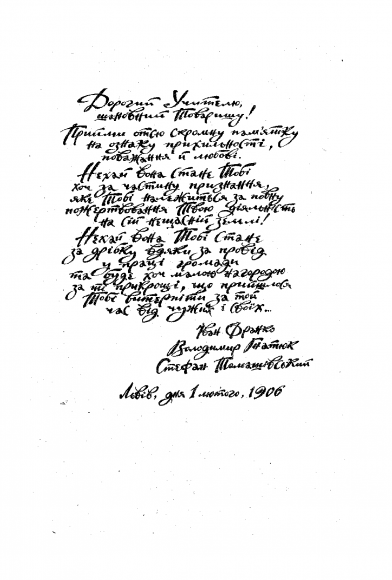 Дорогий Учителю,
шановний Товаришу!
Прийми отсю скромну пам'ятку
на ознаку прихильності,
поважання й любові.
Нехай вона стане Тобі
хоч за частину признання,
яке Тобі належиться за повну
пожертвовання Твою діяльність
на сій нещасній землі!
Нехай вона Тобі стане
за дрібку вдяки за провід
у праці громади
та буде хоч малою нагородою
за ті прикрості, що прийшлося
Тобі витерпіти за той
час від чужих і своїх...
Іван Франко
Володимир Гнатюк
Стефан Томашівський
Львів, дня 1 лютого, 1906